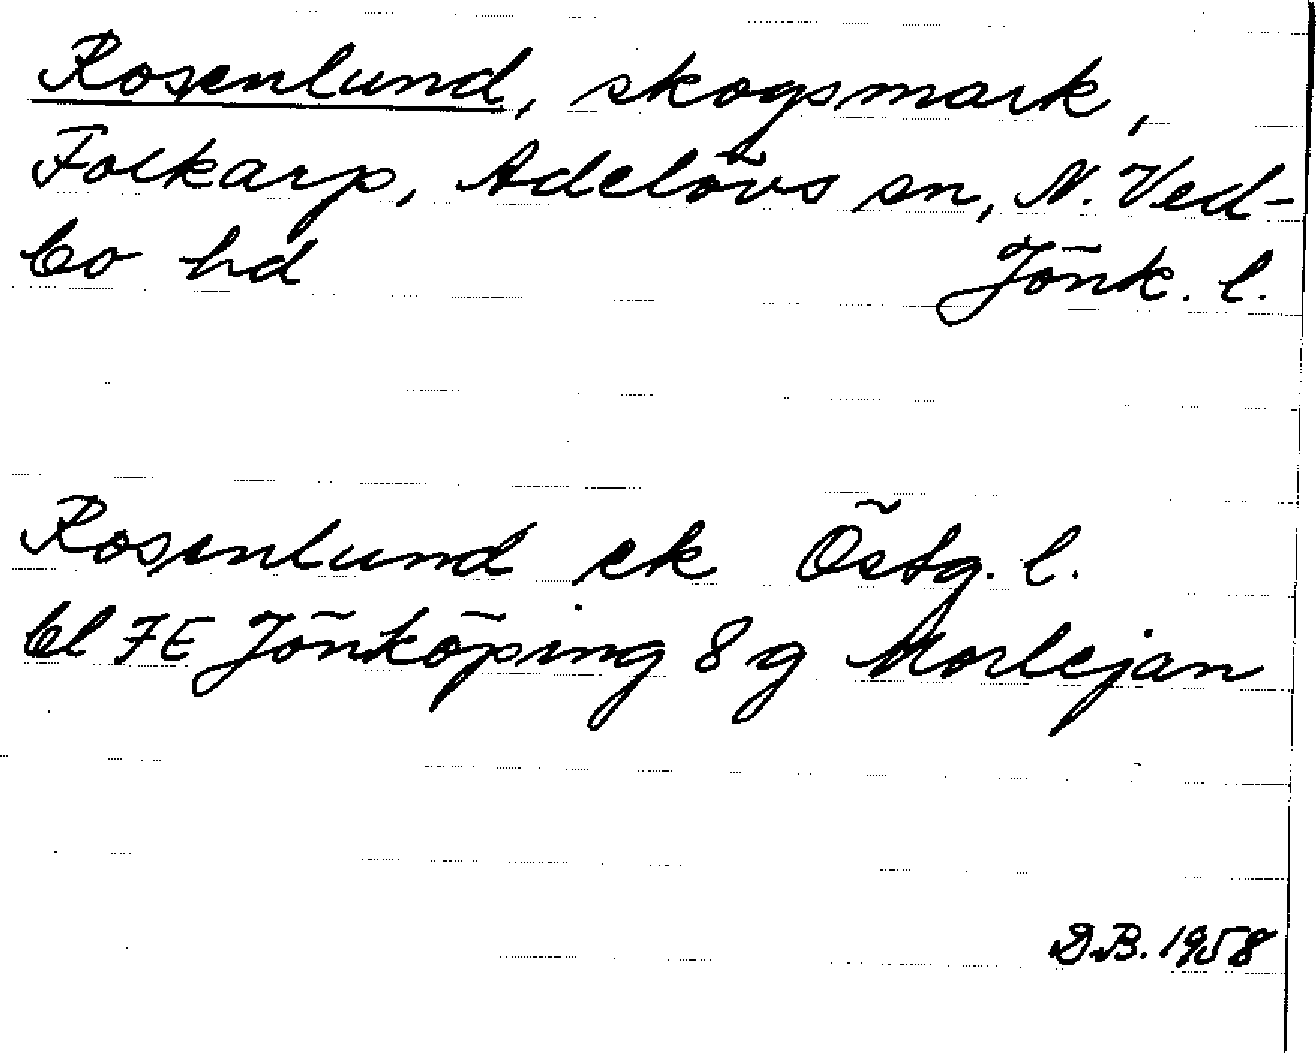 Rosenlund, skogsmark,
Folkarp, Adelövs sn, N. Ved-
bo hd Jönk. l.
Rosenlund ek Östg. l.
bl FE Jönköping 8 g Morlejan
D.B. 1958